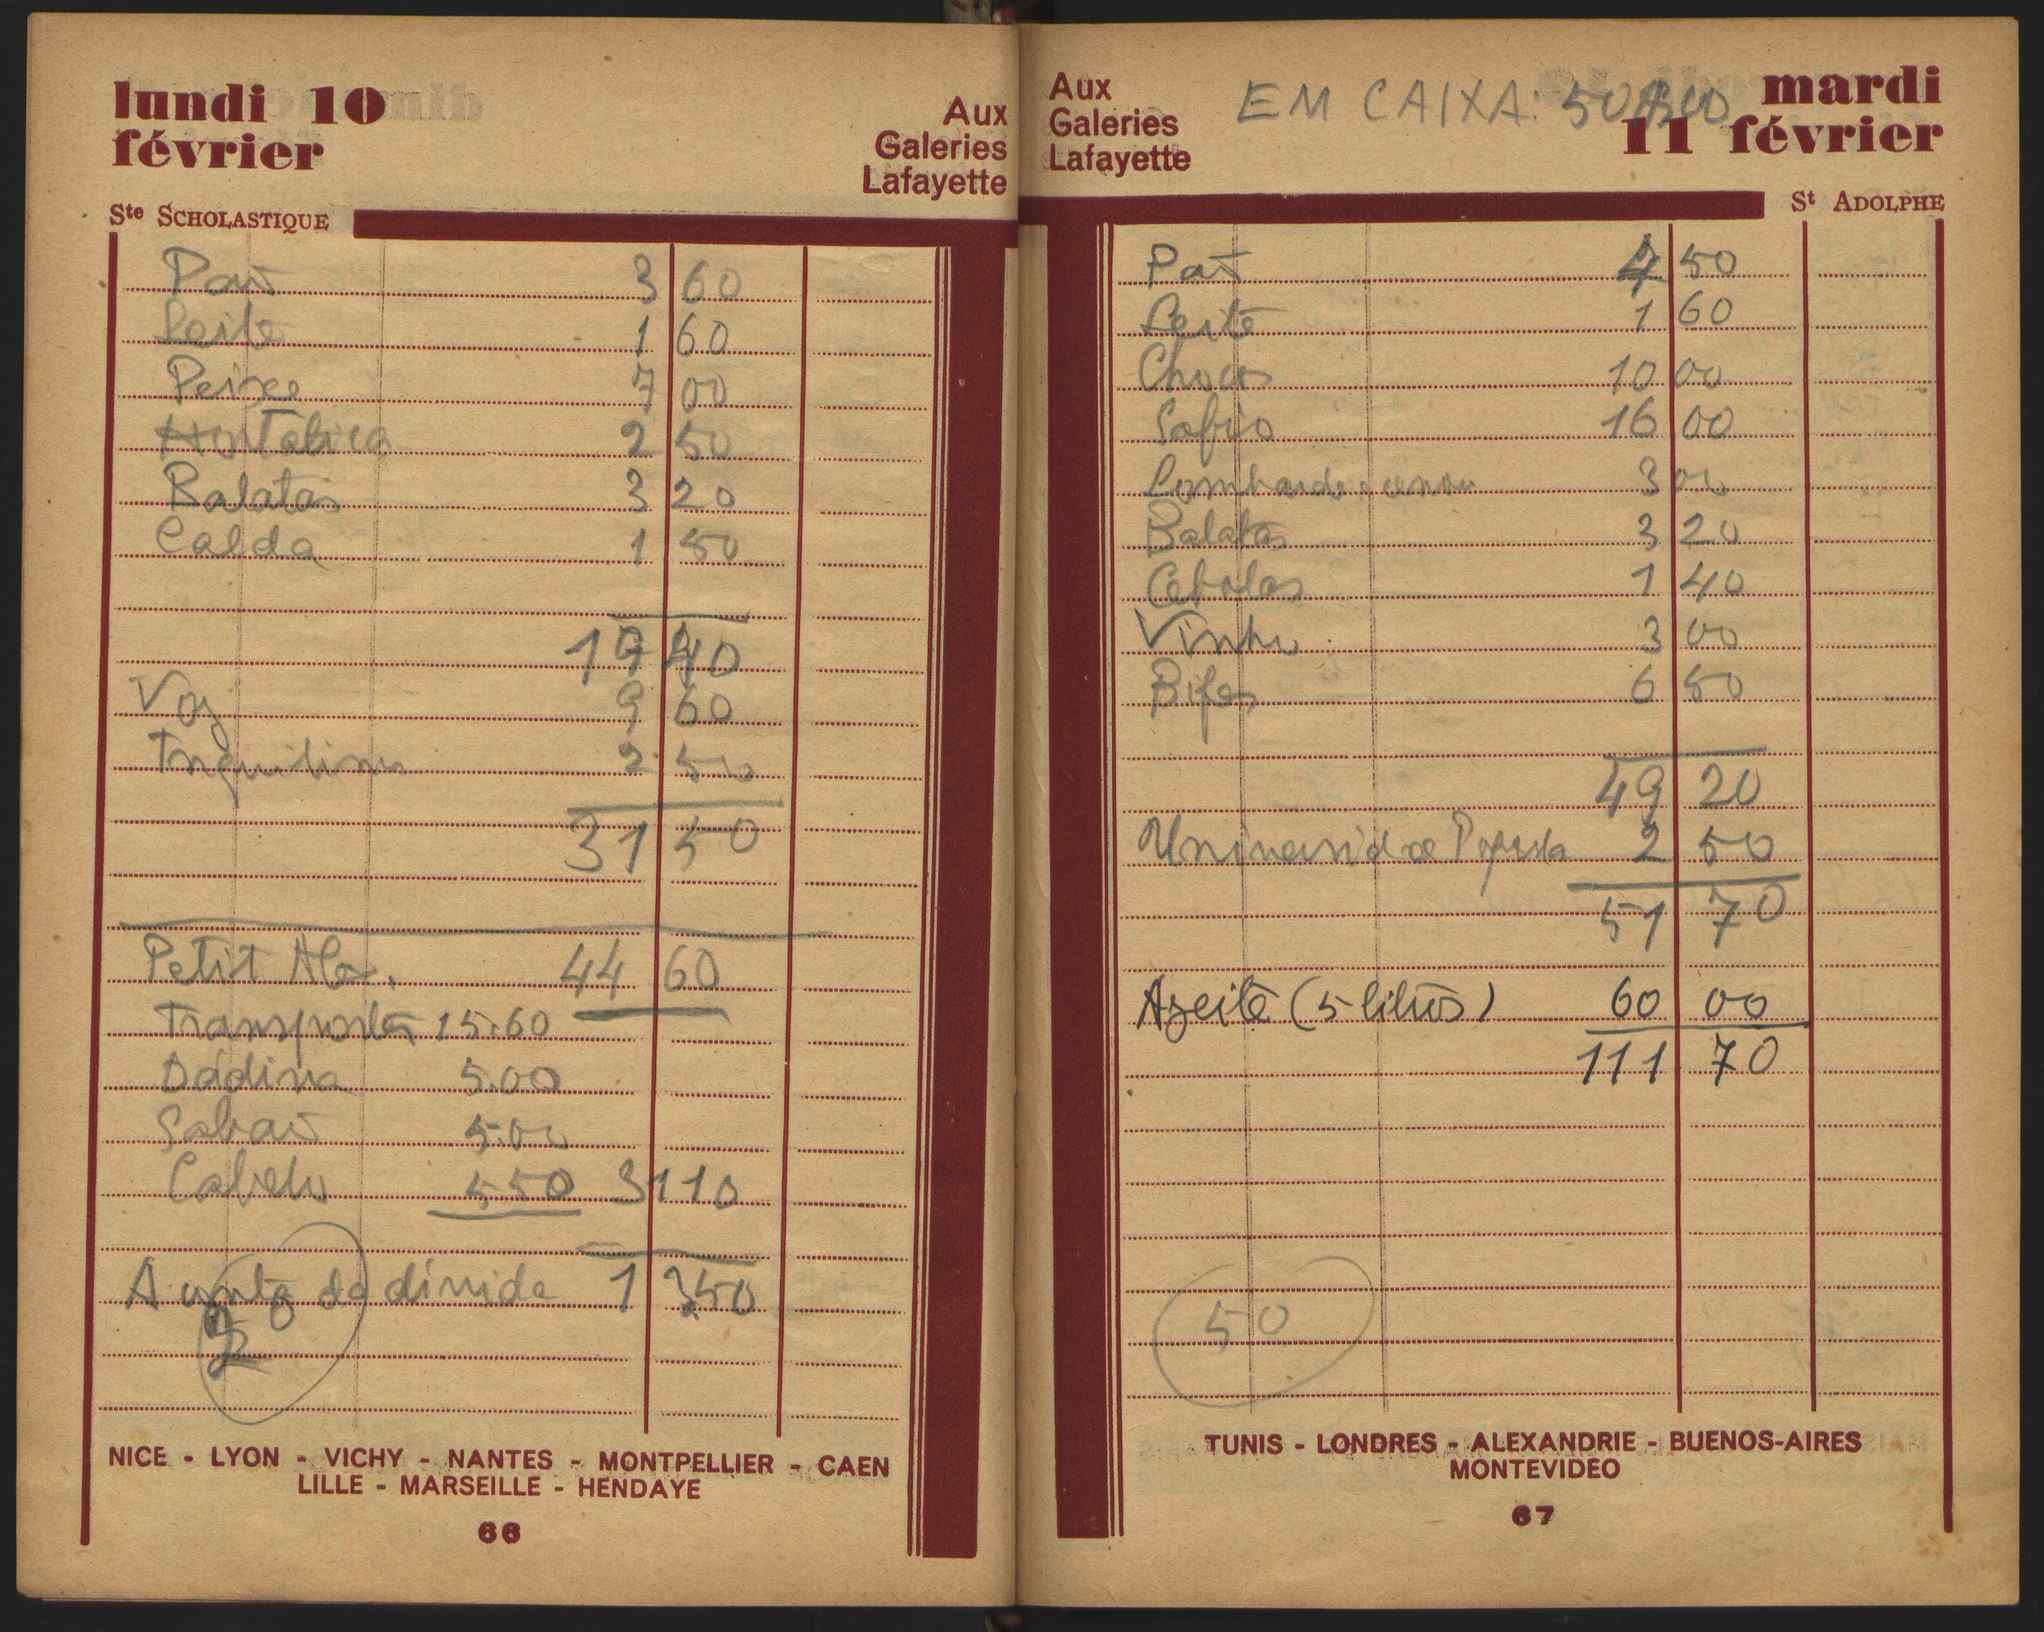 lundi 10
février
Aux
Galeries
Lafayette
Ste SCHOLASTIQUE
Pão 3 60
Leite 1 60
Peixe 7 00
Hortaliça 2 50
Batatas 3 20
Calda 1 50
19 40
Voz 9 60
Inquilinos 2 50
31 50
Petit Alex. 44 60
Transportes 15.60
Dádiva 5.00
Sabão 5.00
Cabelo 5.50 31 10
A conta da dívida 1 3.50
2
NICE - LYON - VICHY - NANTES - MONTPELLIER - CAEN
LILLE - MARSEILLE - HENDAYE
66
Aux
Galeries
Lafayette
EM CAIXA:
mardi
11 février
St ADOLPHE
Pão 4 50
Leite 1 60
Chocos 10 00
Safio 16 00
Lombardo e cenou 3 00
Batatas 3 20
Cebolas 1 40
Vinho 3 00
Bifes 6 50
49 20
Universidade Popular 2 50
51 70
Azeite (5 litros) 60 00
111 70
50
TUNIS - LONDRES - ALEXANDRIE - BUENOS-AIRES
MONTEVIDEO
67